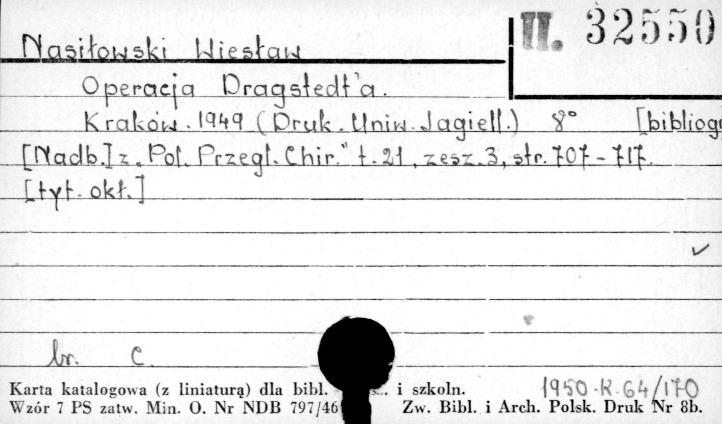 II. 32550
Nasiłowski Wiesław
Operacja Dragstedt'a.
Kraków. 1949 (Druk. Uniw. Jagiell.) 8° [bibliogr
[Nadb.] z „Pol. Przegl. Chir." t. 21, zesz. 3, str. 707-717.
[tyt. okł.]
br. C.
1950.K.64/170
Karta katalogowa (z liniaturą) dla bibl. i szkoln.
Wzór 7 PS zatw. Min. O. Nr NDB 797/46 Zw. Bibl. i Arch. Polsk. Druk Nr 8b.